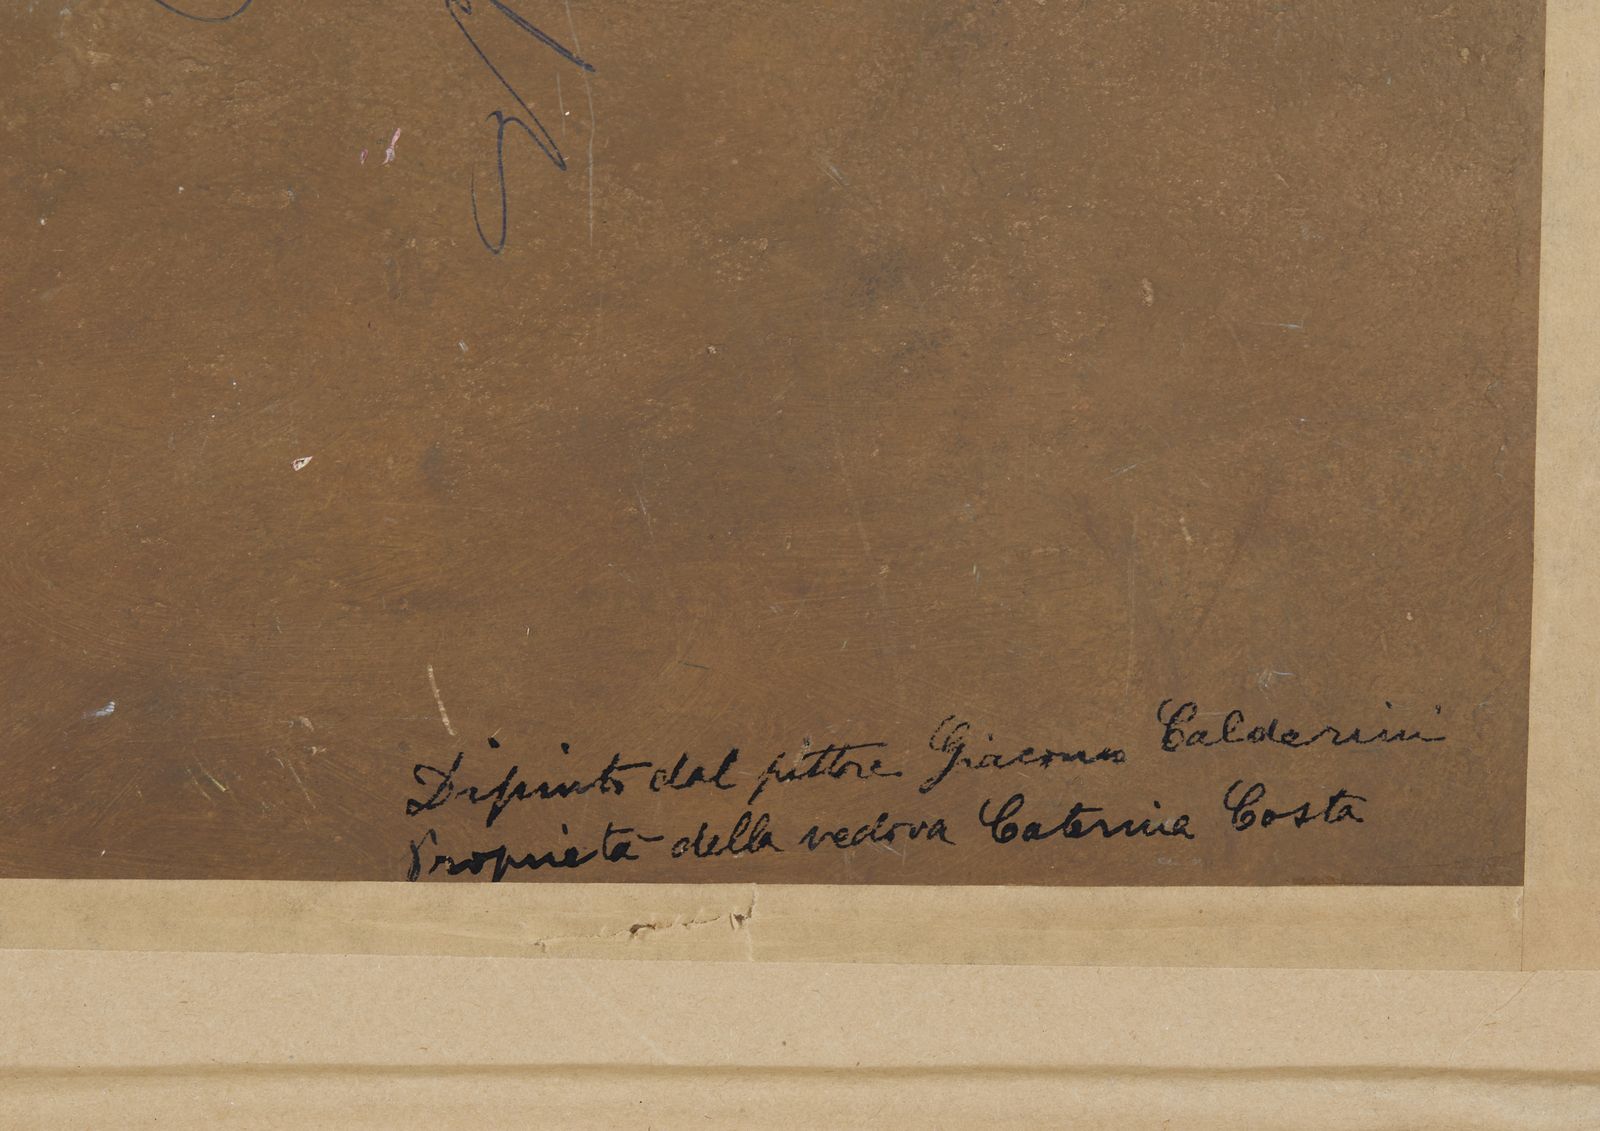 Dipinto dal pittore Giacomo Calderini
Proprietà della vedova Caterina Costa